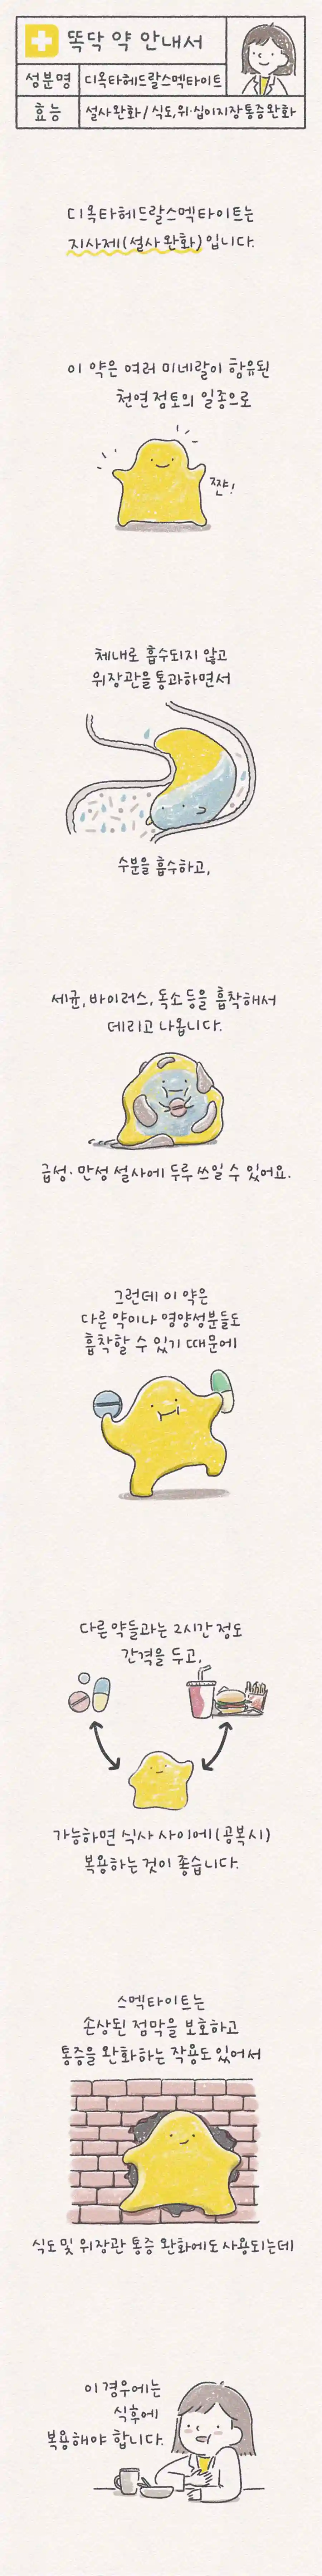 똑닥 약 안내서
성분명 디옥타헤드랄스멕타이트
효능 설사완화/식도,위·십이지장통증완화
디옥타헤드랄스멕타이트는
지사제(설사 완화)입니다.
이 약은 여러 미네랄이 함유된
천연 점토의 일종으로
쨘!
체내로 흡수되지 않고
위장관을 통과하면서
수분을 흡수하고,
세균, 바이러스, 독소 등을 흡착해서
데리고 나옵니다.
급성·만성 설사에 두루 쓰일 수 있어요.
그런데 이 약은
다른 약이나 영양성분들도
흡착할 수 있기 때문에
다른 약들과는 2시간 정도
간격을 두고,
가능하면 식사 사이에(공복시)
복용하는 것이 좋습니다.
스멕타이트는
손상된 점막을 보호하고
통증을 완화하는 작용도 있어서
식도 및 위장관 통증 완화에도 사용되는데
이 경우에는
식후에
복용해야 합니다.